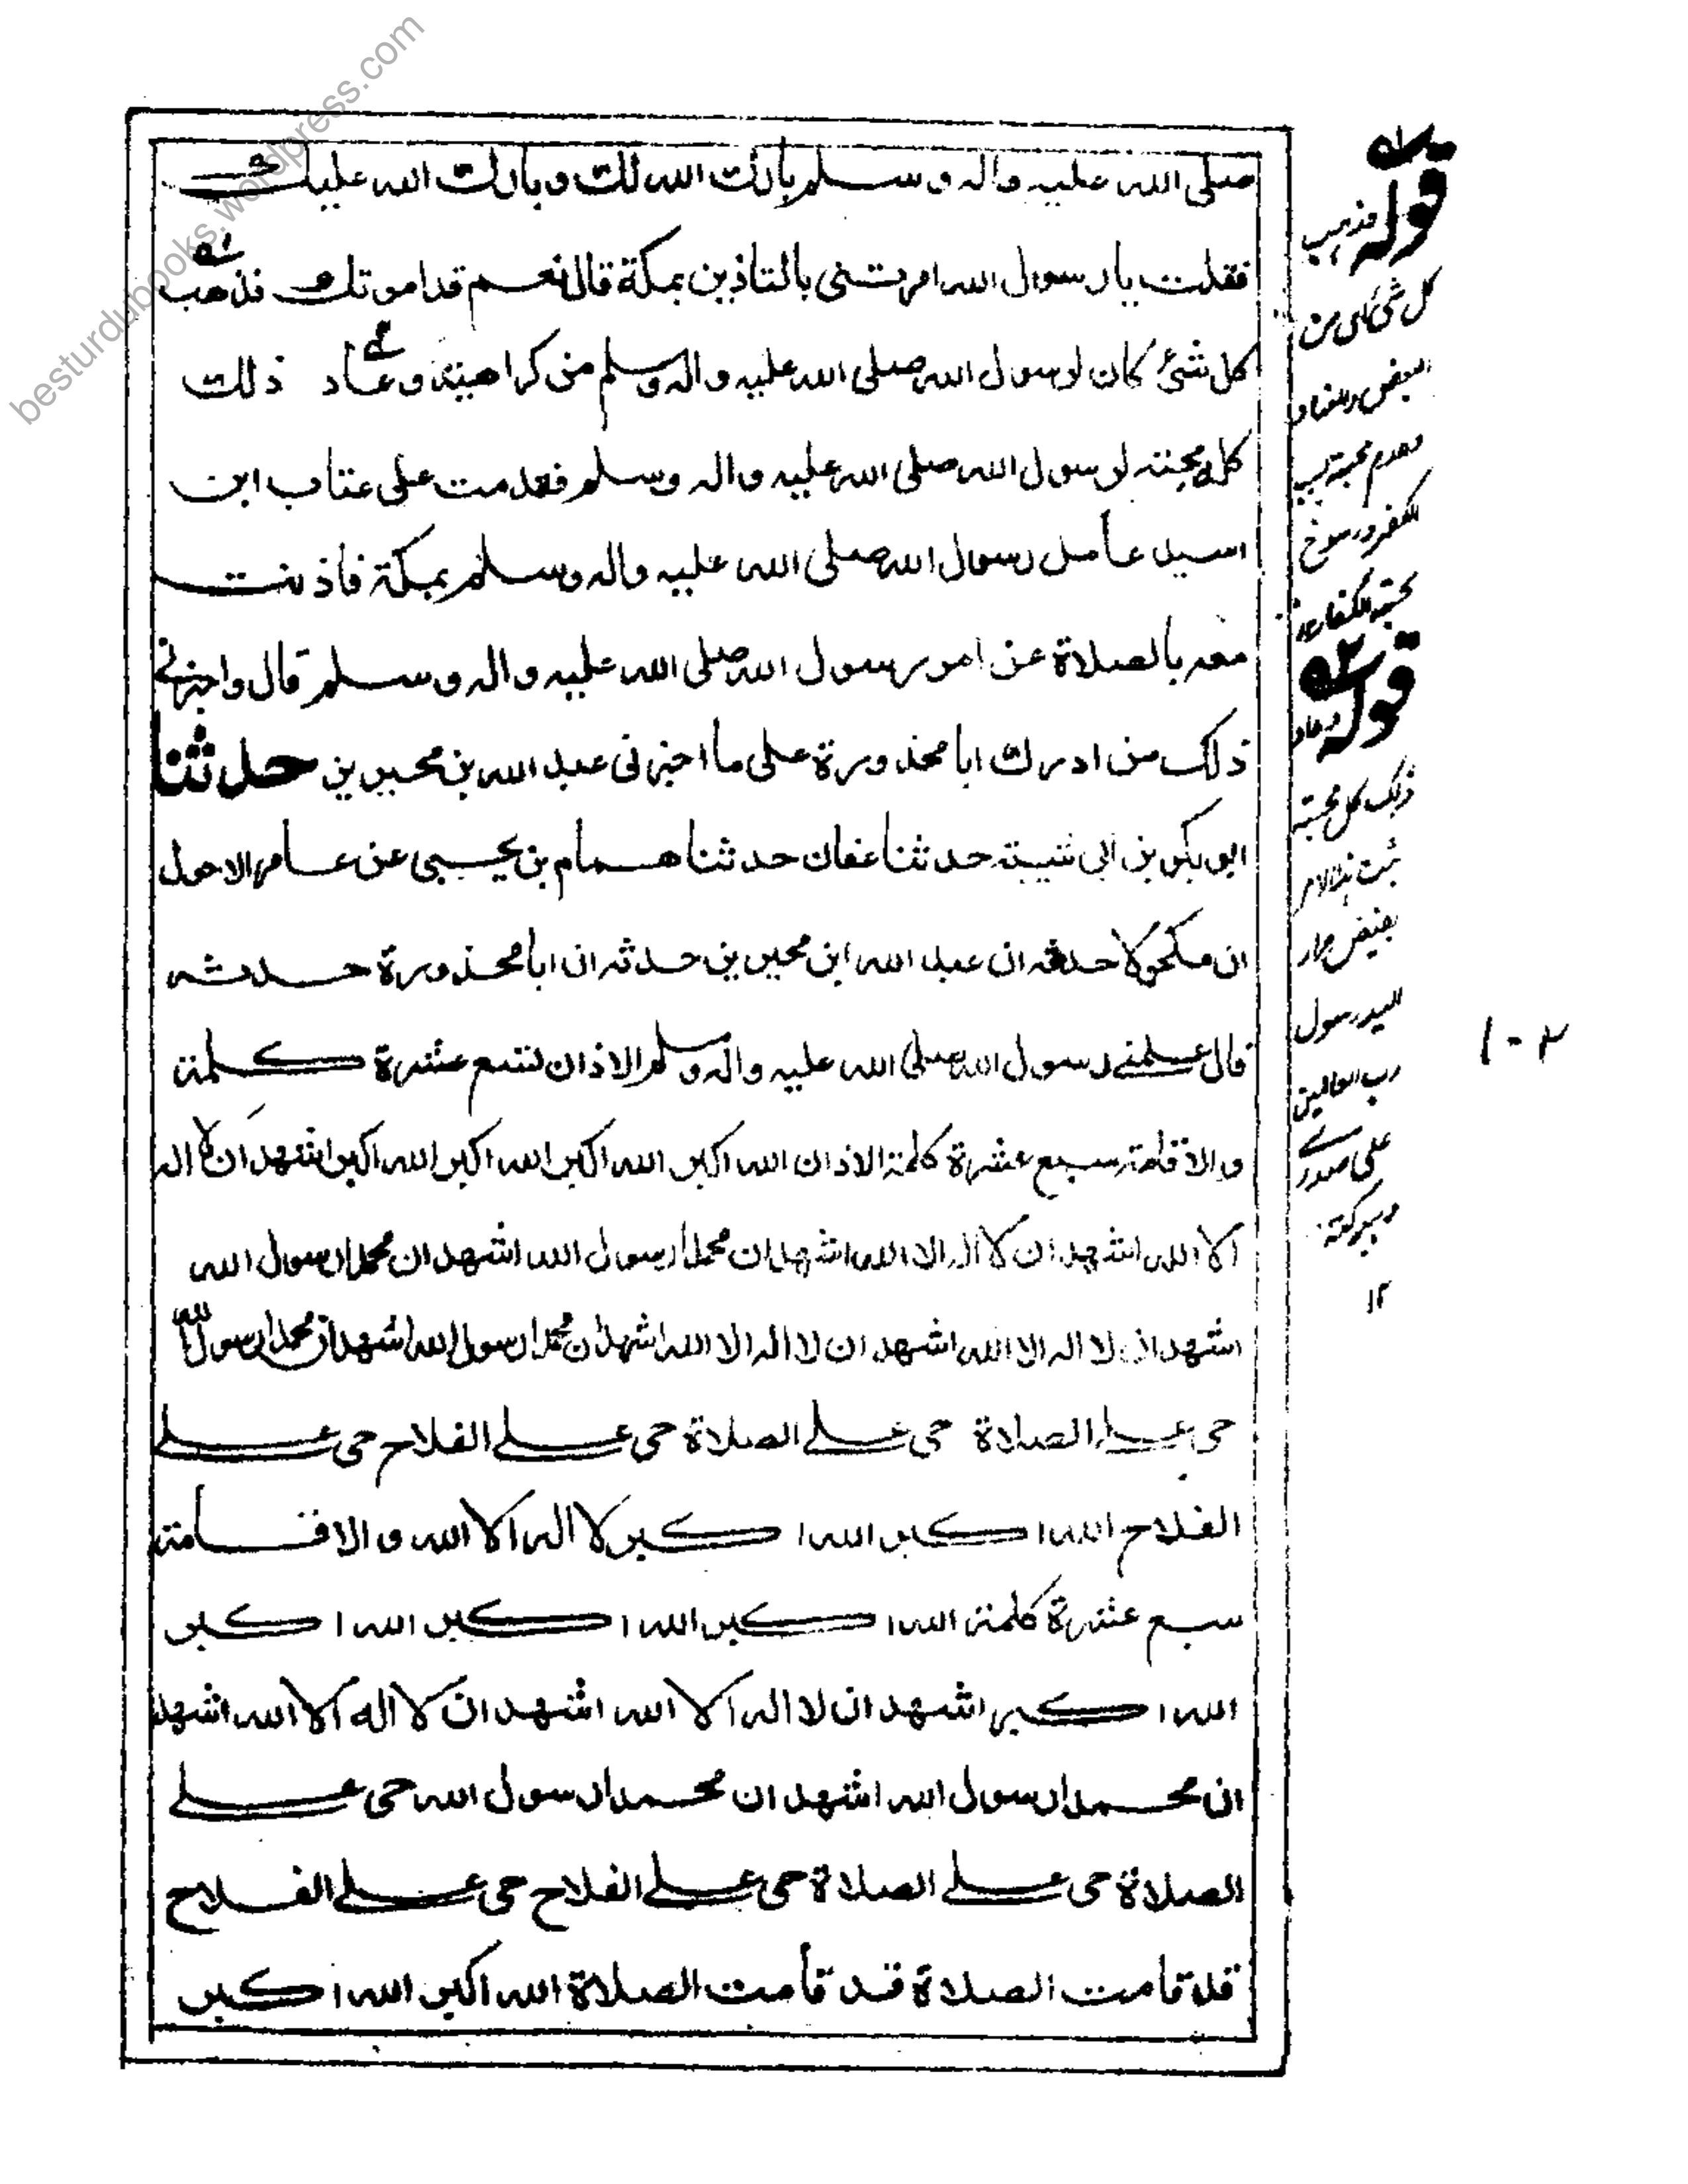 صلى الله عليه واله وسلم بارك الله لك وبارك الله عليك
فقلت يا رسول الله امرتنى بالتاذين بمكة قال نعم قد امرتك فذهب
كل شئ كان لرسول الله صلى الله عليه واله وسلم من كراهيته وعاد ذلك
كله محبته لرسول الله صلى الله عليه واله وسلم فقدمت على عتاب ابن
اسيد عامل رسول الله صلى الله عليه واله وسلم بمكة فاذنت
معه بالصلاة عن امر رسول الله صلى الله عليه واله وسلم قال واخبرنے
ذلك من ادرك ابا محذورة على ما اخبرنى عبد الله بن محيريز حدثنا
ابو بكر بن ابى شيبة حدثنا عفان حدثنا همام بن يحيى عن عامر الاحول
ان مكحولا حدثه ان عبد الله ابن محيريز حدثه ان ابا محذورة حدثه
قال علمنے رسول الله صلى الله عليه واله وسلم الاذان تسع عشرة كلمة
والاقامة سبع عشرة كلمة الاذان الله اكبر الله اكبر الله اكبر الله اكبر اشهد ان لا اله
الا الله اشهد ان لا اله الا الله اشهد ان محمدا رسول الله اشهد ان محمدا رسول الله
اشهد ان لا اله الا الله اشهد ان لا اله الا الله اشهد ان محمدا رسول الله اشهد ان محمدا رسول الله
حى علے الصلاة حى علے الصلاة حى علے الفلاح حى علے
الفلاح الله اكبر الله اكبر لا اله الا الله والاقامة
سبع عشرة كلمة الله اكبر الله اكبر الله اكبر
الله اكبر اشهد ان لا اله الا الله اشهد ان لا اله الا الله اشهد
ان محمدا رسول الله اشهد ان محمدا رسول الله حى علے
الصلاة حى علے الصلاة حى علے الفلاح حى علے الفلاح
قد قامت الصلاة قد قامت الصلاة الله اكبر الله اكبر
قوله فذهب
كل شئ كان من
البغض
وعدم محبة
الكفر ورسوخ
قوله وعاد
ذلك كل محبته
بفيض
السيد رسول
رب العالمين
على صدرے
وببركته
۱۲
۱۰۲
besturdubooks.wordpress.com